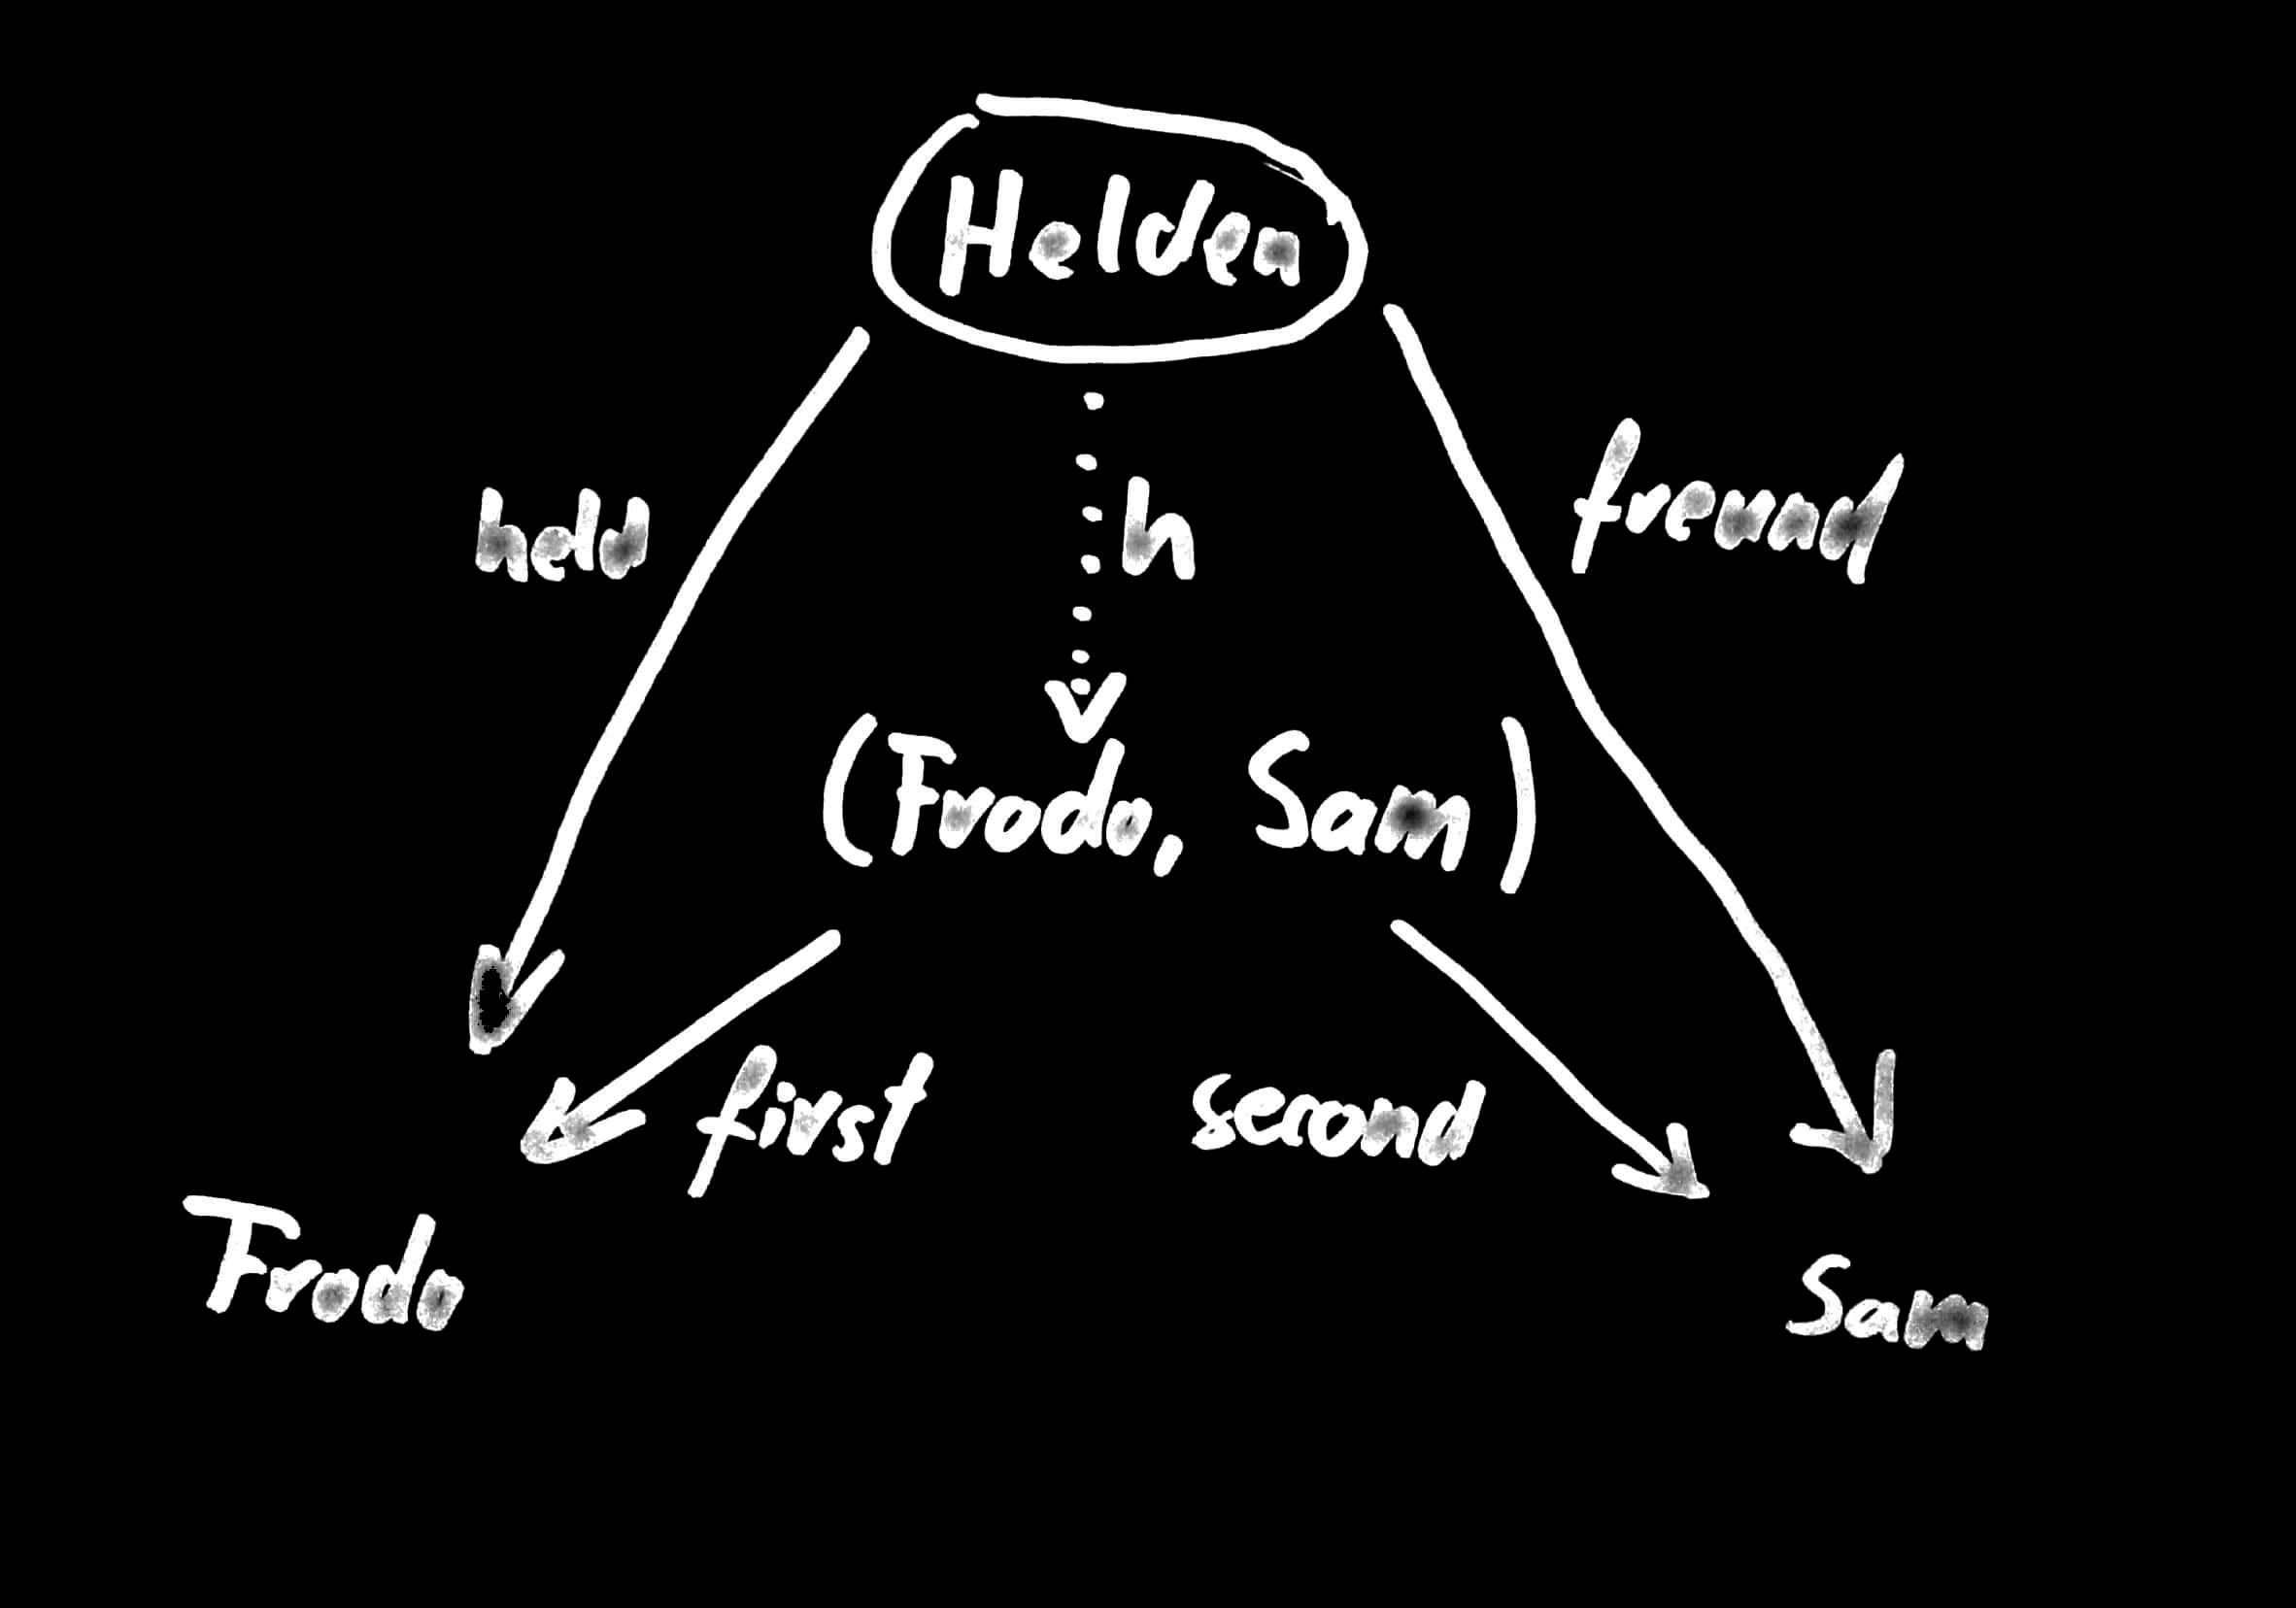 Helden
held
h
freund
(Frodo, Sam)
first
second
Frodo
Sam